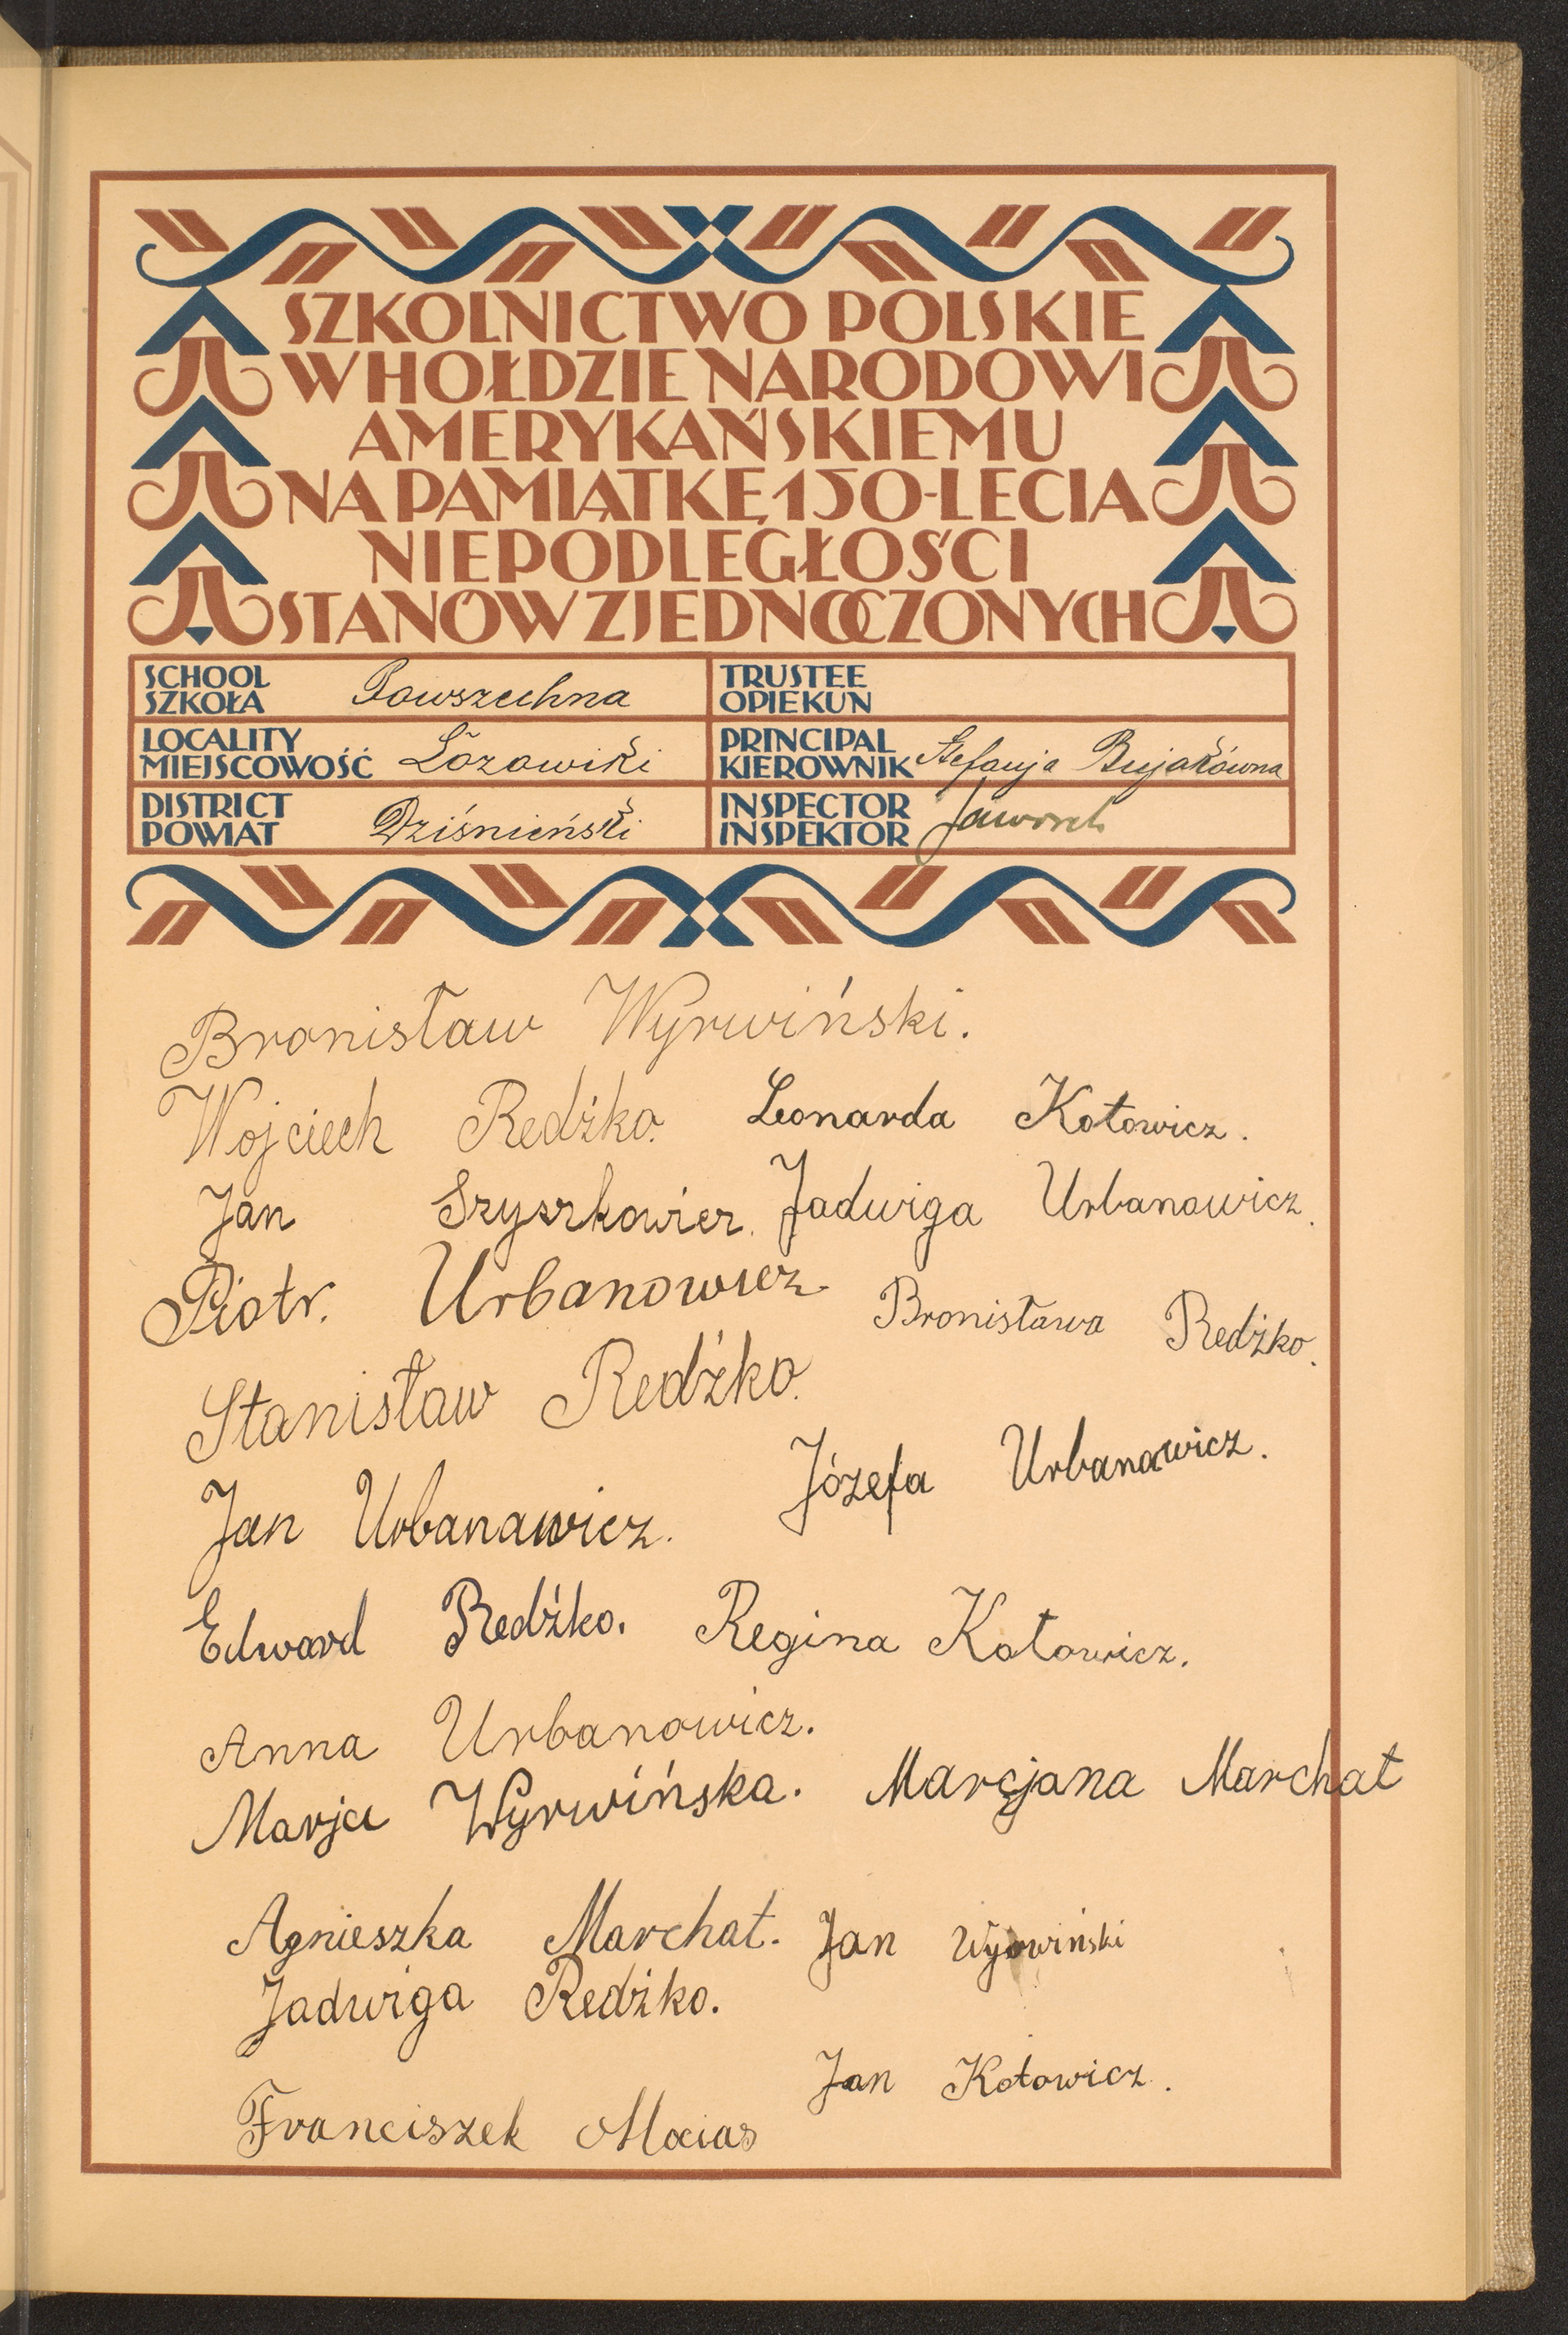 SZKOLNICTWO POLSKIE
W HOŁDZIE NARODOWI
AMERYKAŃSKIEMU
NA PAMIĄTKĘ 150-LECIA
NIEPODLEGŁOŚCI
STANÓW ZJEDNOCZONYCH
SCHOOL
SZKOŁA Powszechna
TRUSTEE
OPIEKUN
LOCALITY
MIEJSCOWOŚĆ Łozowiki
PRINCIPAL
KIEROWNIK Stefanja Bujakówna
DISTRICT
POWIAT Dziśnieński
INSPECTOR
INSPEKTOR Jaworek
Bronisław Wyrwiński.
Wojciech Redźko. Leonarda Kotowicz.
Jan Szyszkowicz. Jadwiga Urbanowicz.
Piotr. Urbanowicz. Bronisława Redżko.
Stanisław Redźko.
Jan Urbanawicz. Józefa Urbanawicz.
Edward Redźko. Regina Kotowicz.
Anna Urbanowicz.
Marja Wyrwińska. Marcjana Marchat
Agnieszka Marchat. Jan Wyrwiński
Jadwiga Redżko.
Jan Kotowicz.
Franciszek Mocias